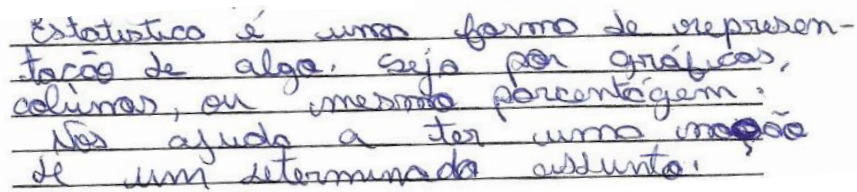 Estatística é uma forma de represen-
tação de algo. Seja por gráficos,
colunas, ou mesmo porcentagem.
Nos ajuda a ter uma noção
de um determinado assunto.